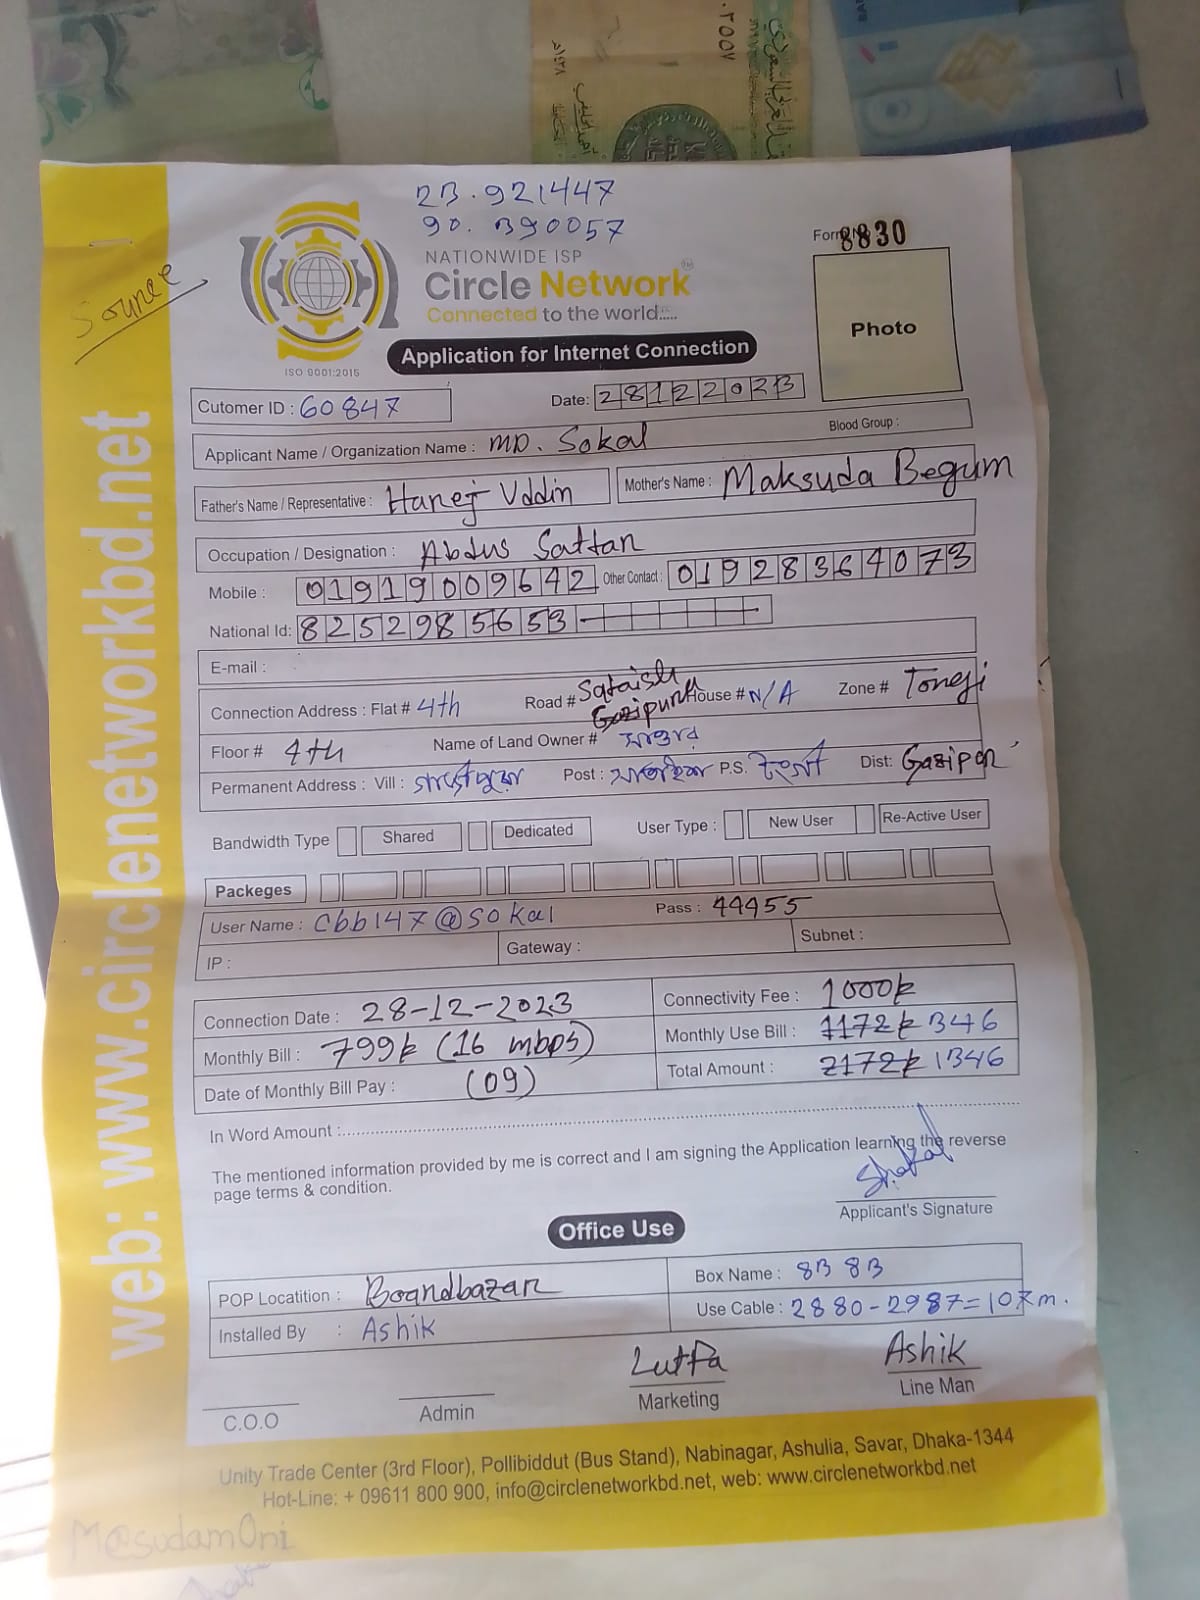 23.921447
90.390057
Source
NATIONWIDE ISP
Circle Network
Connected to the world.....
ISO 9001:2015
Form No 8830
Photo
Application for Internet Connection
Cutomer ID : 60847
Date: 28122023
Applicant Name / Organization Name : MD. Sokal
Blood Group :
Father's Name / Representative : Hanef Uddin
Mother's Name : Maksuda Begum
Occupation / Designation : Abdus Sattar
Mobile : 01919009642 Other Contact : 01928364073
National Id: 8252985653
E-mail :
Connection Address : Flat # 4th Road # Sataish Gazipura House # N/A Zone # Tongi
Floor # 4th Name of Land Owner # সাত্তার
Permanent Address : Vill : Post : সাতাইশ P.S. টংগী Dist: Gazipur
Bandwidth Type Shared Dedicated User Type : New User Re-Active User
Packeges
User Name : cbb147@sokal Pass : 44455
IP : Gateway : Subnet :
Connection Date : 28-12-2023 Connectivity Fee : 1000৳
Monthly Bill : 799৳ (16 mbps) Monthly Use Bill : 1172৳ 346
Date of Monthly Bill Pay : (09) Total Amount : 2172৳ 1346
In Word Amount :
The mentioned information provided by me is correct and I am signing the Application learning the reverse
page terms & condition.
Shakal
Applicant's Signature
Office Use
POP Locatition : Boardbazar Box Name : 83 83
Installed By : Ashik Use Cable : 2880-2987=107m.
Lutfa Ashik
C.O.O Admin Marketing Line Man
Unity Trade Center (3rd Floor), Pollibiddut (Bus Stand), Nabinagar, Ashulia, Savar, Dhaka-1344
Hot-Line: + 09611 800 900, info@circlenetworkbd.net, web: www.circlenetworkbd.net
web: www.circlenetworkbd.net
M@sudamOni